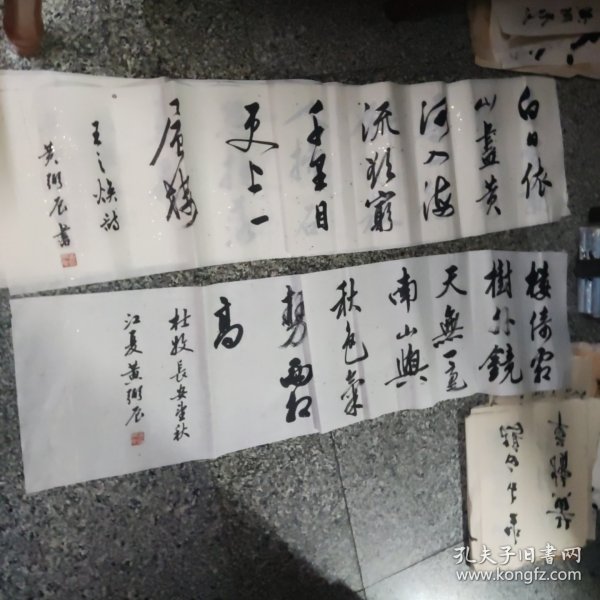 白日依
山盡黄
河入海
流欲窮
千里目
更上一
層樓
王之焕詩
黄衍辰書
樓倚霜
樹外鏡
天無一毫
南山與
秋色氣
勢兩相
高
杜牧長安望秋
江夏黄衍辰
孔夫子旧书网
www.kongfz.com